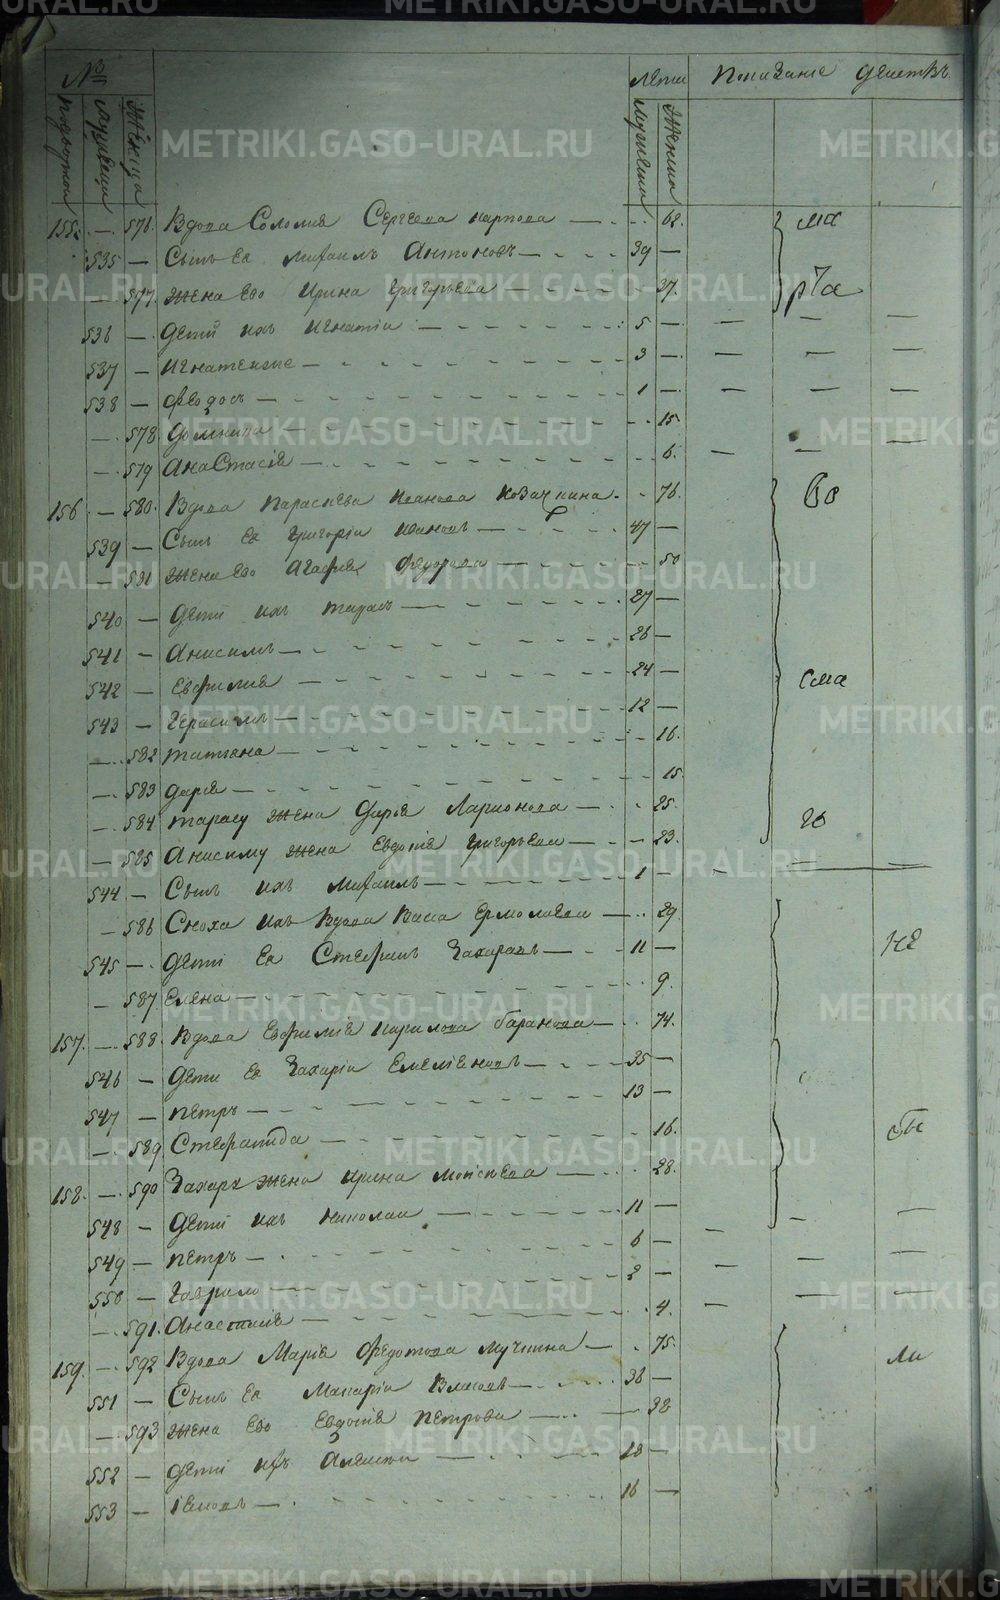 № Лета Показание действъ
Мужеска Женска Мужеска Женска
155. — 576. Вдова Соломия Сергеева Карпова — 62. ма
535 — Сынъ Ея Михаилъ Антоновъ — 39 —
— 577. Жена Ево Ирина Григорьева — 37. рЧа
536 — Дети ихъ Игнатiи — 5 — — — —
537 — Игнатенже — 3 — — — —
538 — Феодосъ — 1 — — — —
— 578 Домника — 15. —
— 579 Анастасiя — 6. — —
156 — 580. Вдова Параскева Иванова Козачкина — 76. во
539 — Сынъ Ея Григорiи Ивановъ — 47 —
— 581 Жена Ево Агафия Федорова — 50
540 — Дети ихъ Тарасъ — 27 —
541 — Анисимъ — 26 —
542 — Евфимия — 24 — сма
543 — Герасимъ — 12 —
— 582 Татiана — 16.
— 583 Дарiя — 15.
— 584 Тарасу жена Дарья Ларионова — 25. го
— 585 Анисиму жена Евдокiя Григорьева — 23.
544 — Сынъ ихъ Михаилъ — 1 — — —
— 586 Сноха ихъ Вдова Васа Ермолаева — 29.
545 — Дети Ея Стефанъ Захаровъ — 11 — не
— 587 Елена — 9.
157. — 588. Вдова Евфимiя Кирилова Баранова — 74.
546 — Дети Ея Захарiи Емелiяновъ — 35 —
547 — Петръ — 13 —
— 589 Стефанида — 16. бы
158. — 590 Захара жена Ирина Моисеева — 28.
548 — Дети ихъ Николаи — 11 — — —
549 — Петръ — 6 — — — —
550 — Гаврило — 2 — — — —
— 591. Анастасiя — 4. — — —
159. — 592 Вдова Марiя Федотова Лучкина — 75. ли
551 — Сынъ Ея Макарiи Власовъ — 38 —
— 593 Жена Ево Евдокiя Петрова — 38
552 — Дети ихъ Алексеи — 18 —
553 — — 16 —